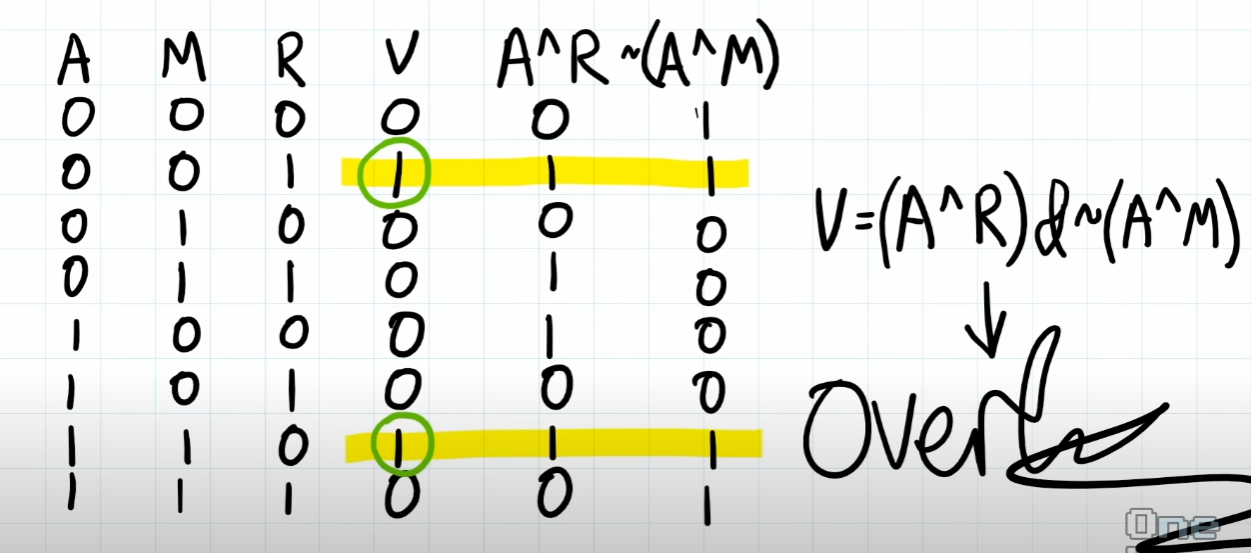 A M R V A^R ~(A^M)
0 0 0 0 0 1
0 0 1 1 1 1
0 1 0 0 0 0
0 1 1 0 1 0
1 0 0 0 1 0
1 0 1 0 0 0
1 1 0 1 1 1
1 1 1 0 0 1
V=(A^R)&~(A^M)
↓
One